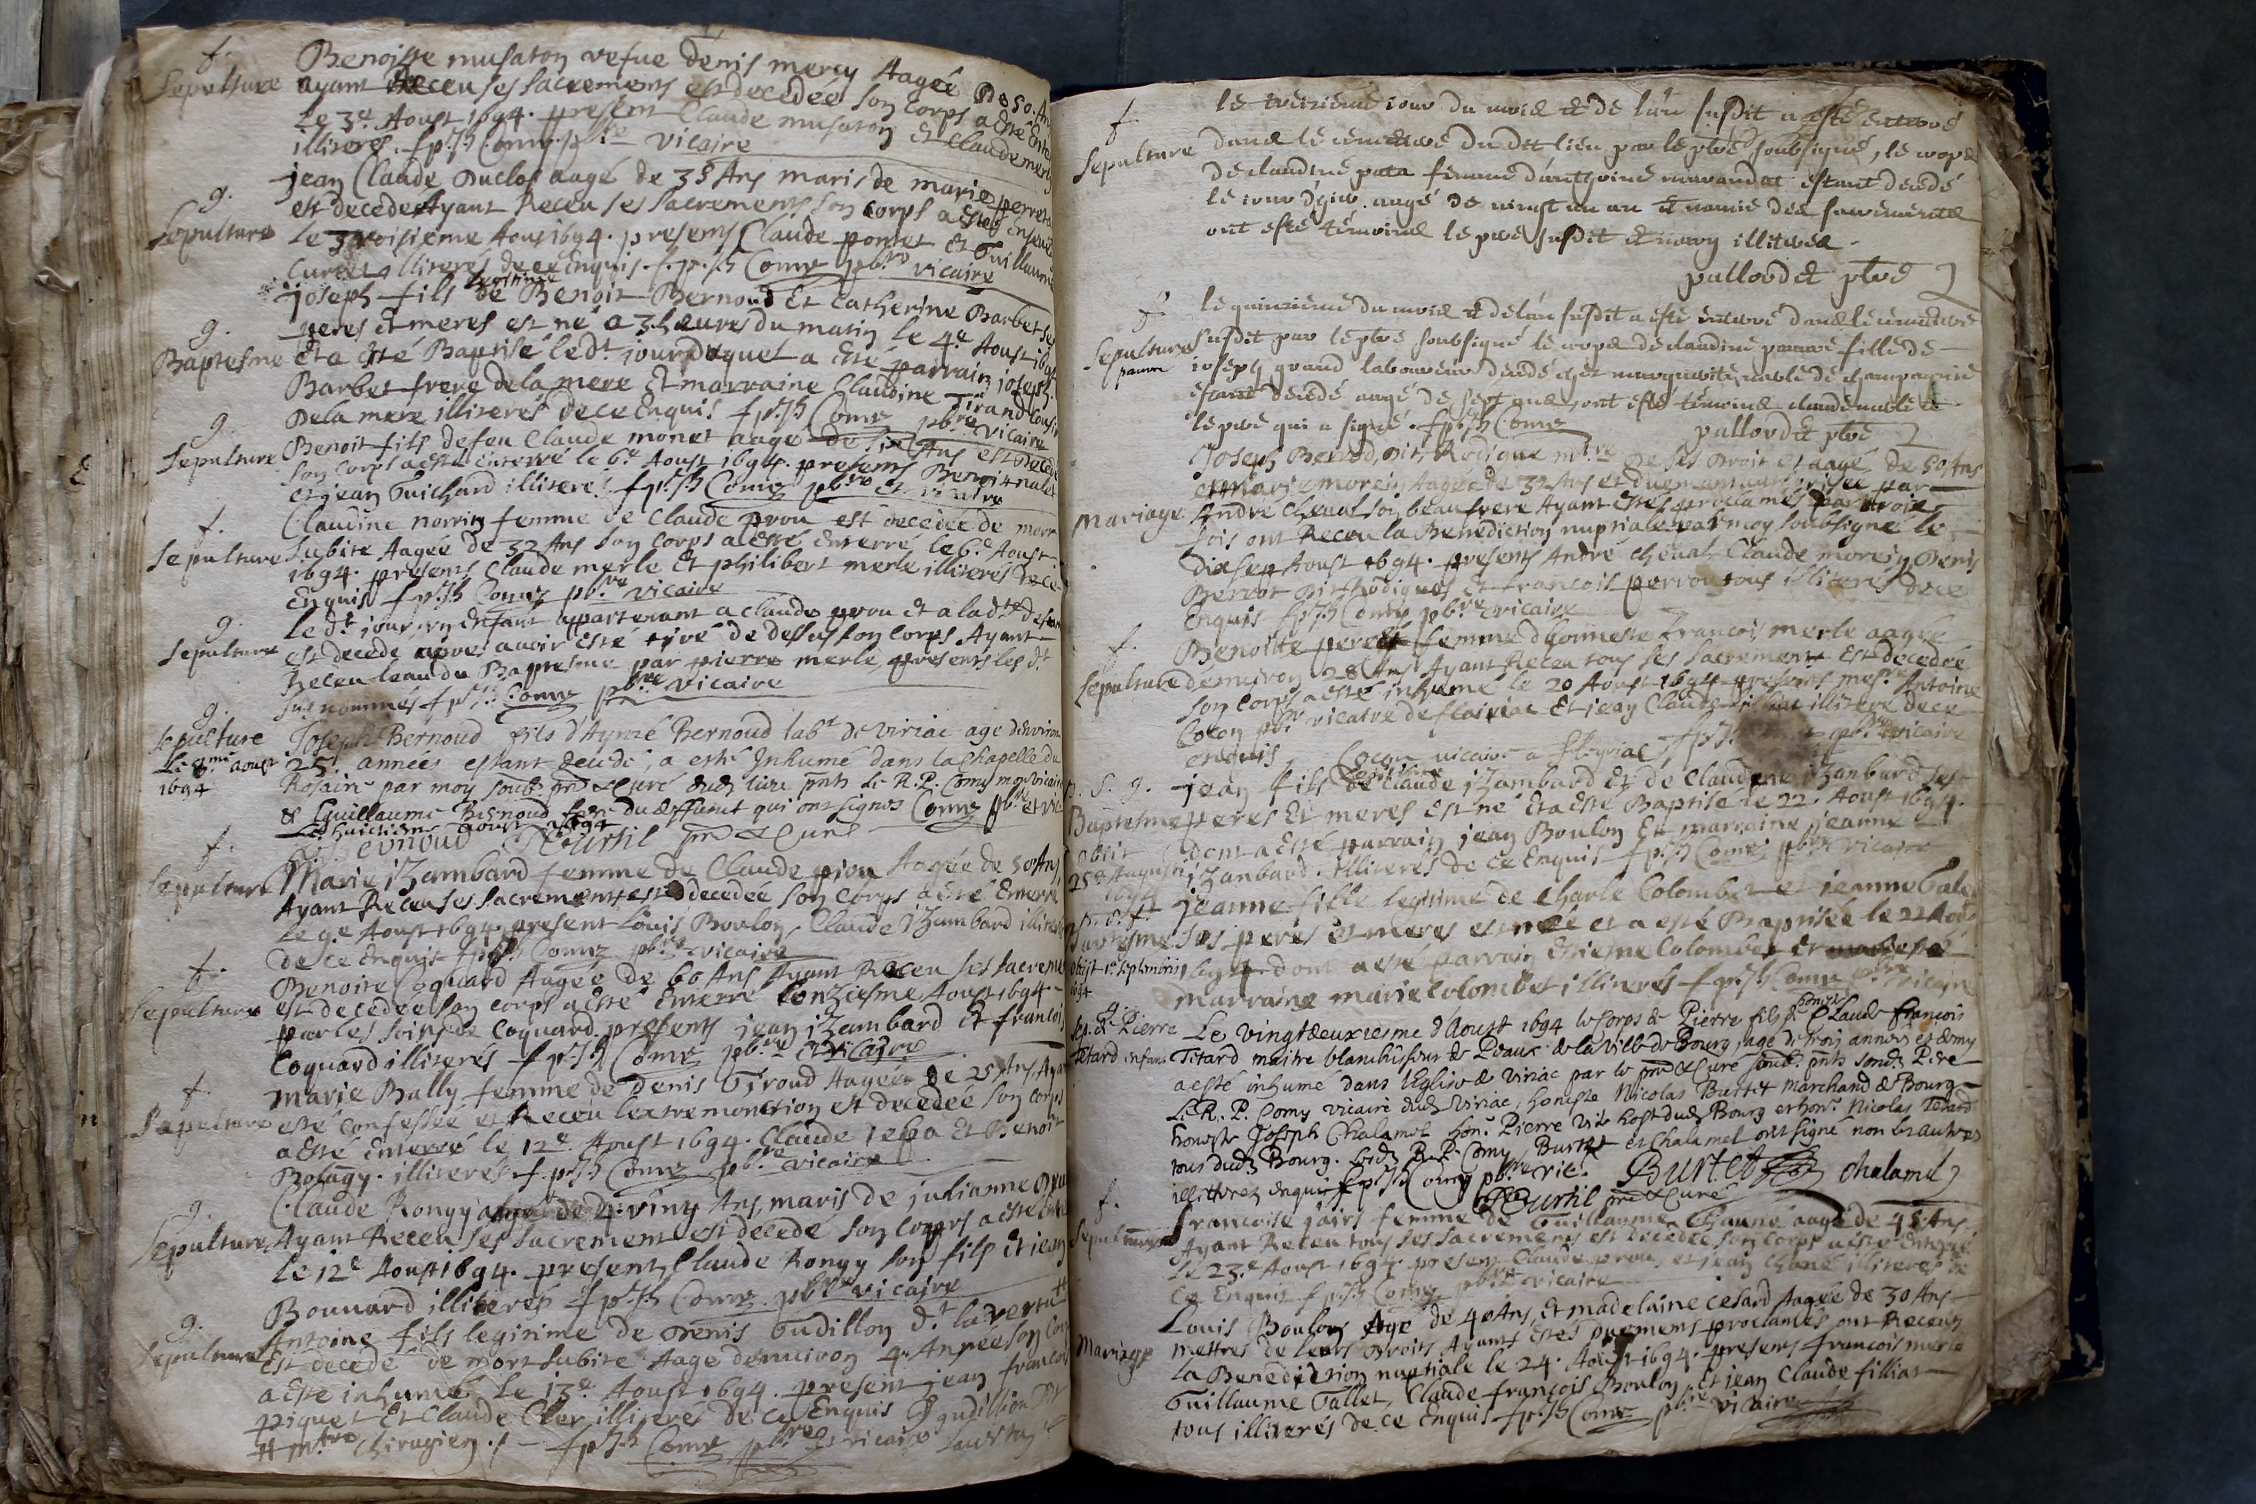 f.
Sepulture
Benoiste musaton vefue denis mercy Aagée De 50. Ans
ayant Receu ses sacrements est decedée son corps a esté Enter
Le 3e. Aoust 1694. present Claude musaton Et Claude mercy
illiterés. f. p. Jh Comy p.bre vicaire
g.
Sepulture
jean Claude Duclos aagé de 35 Ans maris de marie perret
est decedé Ayant Receu ses sacrements son corps a esté enseueli
le 3troisieme Aoust 1694. presents Claude pontet Et Guillaume
Curtet illiterés de ce Enquis. f. p. Jh Comy pbre vicaire
g.
Baptesme
joseph fils legitime de Benoit Bernoud Et Catherine Barbet ses
peres Et meres est né a 3 heures du matin le 4e Aoust 1694
Et a esté Baptisé le dt. jour duquel a esté parrain joseph
Barbet frere de la mere Et marraine Claudine Tirand cousin
De la mere illiterés de ce Enquis f. p. Jh Comy pbre vicaire
g.
Sepulture
Benoit fils de feu Claude monet aagé de six Ans est decedé
son corps a esté Enterré le 6e. Aoust 1694. presents Benoit nalet
et jean Guichard illiterés f p. Jh Comy pbre et vicaire
f.
Sepulture
Claudine norrin femme de Claude prou est decedée de mort
subite Aagée de 32 Ans son corps a esté Enterré le 6e. Aoust
1694. presents Claude merle Et philibert merle illiterés de ce
Enquis f p. Jh Comy pbre vicaire
g.
Sepulture
le dt. jour un Enfant appartenant a claude prou Et a la dte defunte
est decedé apres auoir esté tiré de dessus son corps Ayant
Receu l'eau du Baptesme par pierre merle, presents les dt
sus nommés f p. Jh Comy pbre vicaire
g.
Sepulture
Le 8me aoust
1694
Joseph Bernoud fils d'Aymé Bernoud labt. de viriac agé denviron
25. années estant decedé, a esté Inhumé dans la Chapelle du
Rosaire par moy soubz. pre & Curé dudt lieu pnts Le R. P. Comy mon vicaire
& Guillaume Bernoud frere du deffunct qui ont signés Comy pbre et vic
Le huictiesme aoust 1694
Bernoud Courtil pre & Curé
f.
Sepulture
Marie jZambard femme de Claude pion Aagée de 50 Ans
Ayant Receu ses sacrements est decedée son corps a esté Enterré
le 9e Aoust 1694. present Louis Boulon, Claude jZambard illiterés
de ce Enquis f p. Jh Comy pbre vicaire
f.
Sepulture
Benoite Coquard Aagée de 60 Ans Ayant Receu ses sacreme
est decedée son corps a esté Enterré l'onziesme Aoust 1694.
par les soins de Coquard, presents jean jZambard Et francois
Coquard illiterés f p. Jh Comy pbre Et vicaire
f.
Sepulture
Marie Bally femme de Denis Giroud Aagée de 25 Ans, Aya
esté Confessée et Receu l'extremonction est decedée son corps
a esté Enterré le 12e. Aoust 1694. Claude Et Benoit
Bolagy. illiterés f. p. Jh Comy pbre vicaire
g.
Sepulture
Claude Rongy agé de 4.vint Ans, maris de julianne
Ayant Receu ses sacrement est decedé son corps a esté
le 12e Aoust 1694. present Claude Rongy son fils Et jean
Bouuard illiterés f p. Jh Comy pbre vicaire
g.
Sepulture
Antoine fils legitime de Denis Gudillon d.t la vertu #
Est decedé de mort subite Aagé denuiron 4 Années son corp
a esté inhumé le 13e. Aoust 1694. present jean francois
piquet Et Claude Cler illiterés de ce Enquis D gudillion Dt
# mtre Chirugien. f p. Jh Comy pbre vicaire lavertu
f
Sepulture
le treizieme iour du mois et de l'an susdit a esté enterré
dans le cimetiere du dit lieu par le ptre soubsigné, le corps
de claudine pata femme d'anthoine marandat estant decedé
le iour d'hier aagé de vingt un an et munie des sacrements
ont esté témoins le pere susdit et illiteres.
pallordet ptre
f
Sepulture
pauvre
le quinzieme du mois et de l'an susdit a esté enterré dans le cimetiere
susdit par le ptre soubsigné le corps de claudine pauvre fille de
ioseph grand laboureur decedé chez marguerite nable de champagne
estant decedé aagé de sept ans, ont esté témoins claude nable et
le pere qui a signé. f p Jh Comy pallordet ptre
Mariage
Joseph Berrod, Dit Rodigue mtre De ses Droit et aagé de 50 Ans
et marie morein Aagée de 32 Ans et duement authorisée par
André Cheual son beau frere Ayant Estés proclamés par trois
fois ont Receu la Benediction nuptiale par moy soubsigné le
dixsept Aoust 1694. presents André cheual, Claude morein, Denis
Berrot Dit Rodigues Et francois perrou tous illiterés de ce
Enquis f p. Jh Comy pbre vicaire
f.
Sepulture
Benoitte peret femme dhonneste francois merle aagée
denuiron 28 Ans Ayant Receu tous ses sacrement Est decedée
son corps a esté inhumé le 20 Aoust 1694 presents messe Antoine
Cocon pbr vicaire de flairiac Et jean Claude illitere de ce
enquis Cocon vicaire a fleyriac f p. Jh pbre vicaire
p. S. g.
Baptesme
obiit
25a Augusti
1694
jean fils legitime de Claude jZambard Et de Claudine jZanbard ses
peres Et meres Est né Et a esté Baptisé le 22. Aoust 1694.
dont a esté parrain jean Boulon Et marraine jeanne
jZanbard. illiterés de ce Enquis f p. Jh Comy pbre vicaire
p. S. f.
Baptesme
obiit 1a septembris
1694
jeanne fille legitime de Charle Colombet et jeanne Gale
ses peres Et meres est née et a esté Baptisée le 22 Aou
1694 dont a esté parrain Etienne Colombet Et
marraine marie Colombet illiterés f p. Jh Comy pbre vicaire
g.
sep. de Pierre
Tetard enfant
Le vingtdeuxiesme d'Aoust 1694 le corps de Pierre fils d' honor. Claude François
Tétard maitre blanchisseur de Peaux de la ville de Bourg, agé de trois années et demy
a esté inhumé dans l'Eglise de viriac par le pre & Curé soubz. pnts. sondt Pere
Le R. P. Comy vicaire dudt viriac, honneste Nicolas Burtet Marchand de Bourg
honneste Joseph Chalamel hon. Pierre hoste dudt Bourg et hon. Nicolas Tetard
tous dudt Bourg. Ledt R. P. Comy, Burtet et Chalamel ont signé non les autres
illitterez enquis f p Jh Comy pbre vic. Burtet Chalamel
Courtil pre & Curé
f.
Sepulture
francoise jairs femme de Guillaume Chauné aagée de 45 Ans
Ayant Receu tous ses sacrements est decedée son corps a esté Enterré
le 23e. Aoust 1694. present Claude prou, et jean Chané illiterés de
ce Enquis f p. Jh Comy pbre vicaire
Mariage
Louis Boulon Agé de 40 Ans, Et madelaine cesard Aagée de 30 Ans
mettres de leurs Droits Ayants Estés duements proclamés ont Receus
la Benediction nuptiale le 24. Aoust 1694. presents francois merle
Guillaume Tallet, Claude françois Boulon, Et jean Claude filliat
tous illiterés de ce Enquis f p. Jh Comy pbre vicaire